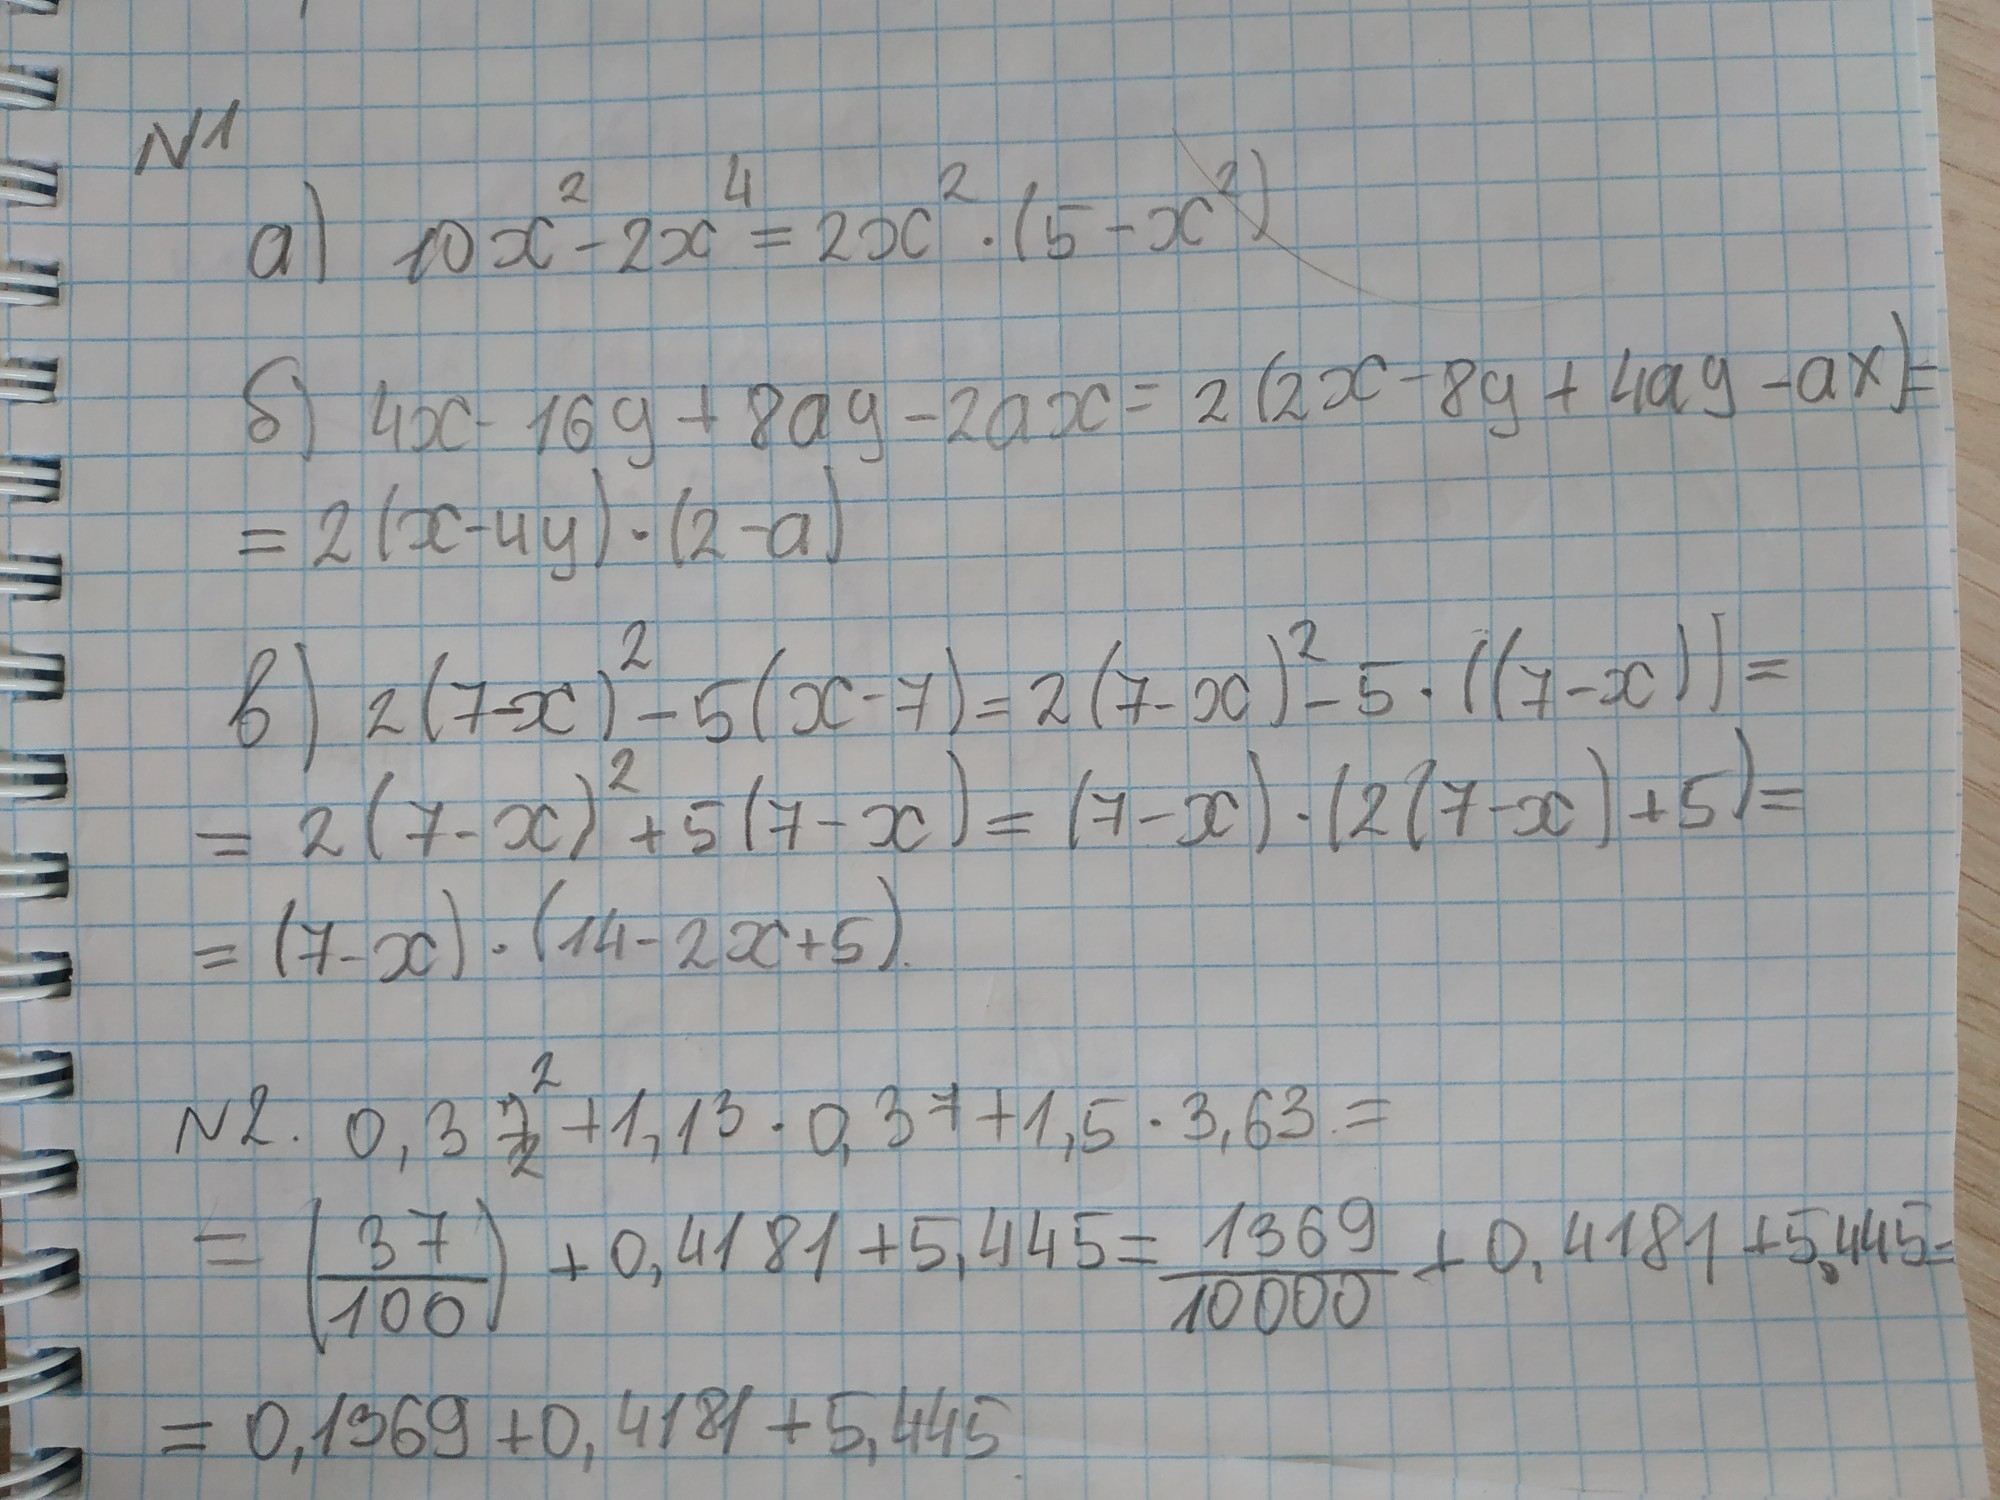 N1
а) 10x² - 2x⁴ = 2x² · (5 - x²)
б) 4x - 16y + 8ay - 2ax = 2 (2x - 8y + 4ay - ax) =
= 2 (x - 4y) · (2 - a)
в) 2 (7 - x)² - 5 (x - 7) = 2 (7 - x)² - 5 · ((7 - x)) =
= 2 (7 - x)² + 5 (7 - x) = (7 - x) · (2 (7 - x) + 5) =
= (7 - x) · (14 - 2x + 5).
N2. 0,37² + 1,13 · 0,37 + 1,5 · 3,63 =
= (37/100) + 0,4181 + 5,445 = 1369/10000 + 0,4181 + 5,445 =
= 0,1369 + 0,4181 + 5,445